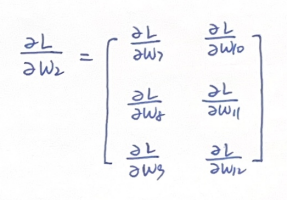 ∂L/∂W₂ = [ ∂L/∂W₇ ∂L/∂W₁₀
∂L/∂W₈ ∂L/∂W₁₁
∂L/∂W₉ ∂L/∂W₁₂ ]